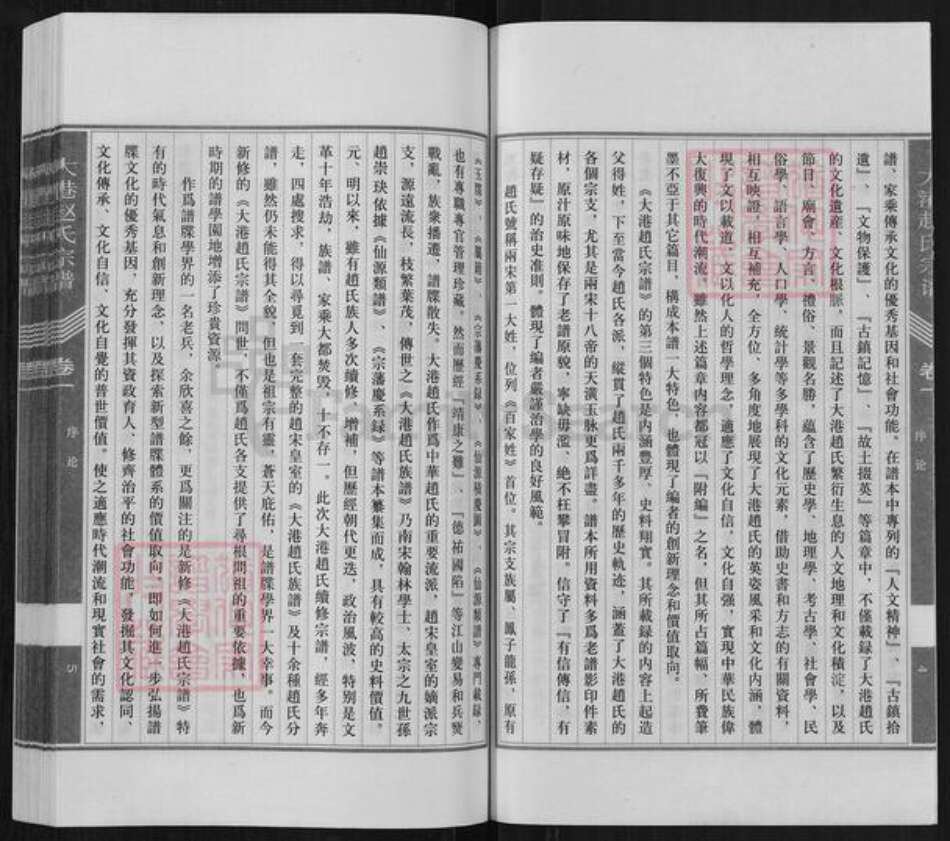 譜、家乘傳承文化的優秀基因和社會功能。在譜本中專列的『人文精神』、『古鎮拾
遺』、『文物保護』、『古鎮記憶』、『故土掇英』等篇章中，不僅載録了大港趙氏
的文化遺産、文化根脈，而且記述了大港趙氏繁衍生息的人文地理和文化積淀，以及
節目、廟會、方言、禮俗、景觀名勝，蘊含了歷史學、地理學、考古學、社會學、民
俗學、語言學、人口學、統計學等多學科的文化元素，借助史書和方志的有關資料，
相互映證，相互補充，全方位、多角度地展現了大港趙氏的英姿風采和文化内涵，體
現了文以載道、文以化人的哲學理念，適應了文化自信、文化自强，實現中華民族偉
大復興的時代潮流。雖然上述篇章内容都冠以『附編』之名，但其所占篇幅、所費筆
墨不亞于其它篇目，構成本譜一大特色，也體現了編者的創新理念和價值取向。
《大港趙氏宗譜》的第三個特色是内涵豐厚、史料翔實。其所載録的内容上起造
父得姓，下至當今趙氏各派，縱貫了趙氏兩千多年的歷史軌迹，涵蓋了大港趙氏的
各個宗支，尤其是兩宋十八帝的天潢玉脉更爲詳盡。譜本所用資料多爲老譜影印件素
材，原汁原味地保存了老譜原貌，寧缺毋濫、絶不枉攀冒附。信守了『有信傳信，有
疑存疑』的治史准則。體現了編者嚴謹治學的良好風範。
趙氏號稱兩宋第一大姓，位列《百家姓》首位。其宗支族屬、鳳子龍孫，原有
《玉牒》、《屬籍》、《宗藩慶系録》、《仙源積慶圖》、《仙源類譜》專門載録，
也有專職專官管理珍藏。然而歷經『靖康之難』、『德祐國陷』等江山變易和兵燹
戰亂，族衆播遷，譜牒散失。大港趙氏作爲中華趙氏的重要流派，趙宋皇室的嫡派宗
支，源遠流長，枝繁葉茂，傳世之《大港趙氏族譜》乃南宋翰林學士、太宗之九世孫
趙崇玦依據《仙源類譜》、《宗藩慶系録》等譜本纂集而成，具有較高的史料價值。
元、明以來，雖有趙氏族人多次續修、增補，但歷經朝代更迭，政治風波，特别是文
革十年浩劫，族譜、家乘大都焚毁，十不存一。此次大港趙氏續修宗譜，經多年奔
走，四處搜求，得以尋覓到一套完整的趙宋皇室的《大港趙氏族譜》及十余種趙氏分
譜，雖然仍未能得其全貌，但也是祖宗有靈，蒼天庇佑，是譜牒學界一大幸事。而今
新修的《大港趙氏宗譜》問世，不僅爲趙氏各支提供了尋根問祖的重要依據，也爲新
時期的譜學園地增添了珍貴資源。
作爲譜牒學界的一名老兵，余欣喜之餘，更爲關注的是新修《大港趙氏宗譜》特
有的時代氣息和創新理念，以及探索新型譜牒體系的價值取向，即如何進一步弘揚譜
牒文化的優秀基因，充分發揮其資政育人、修齊治平的社會功能，發掘其文化認同、
文化傳承、文化自信、文化自覺的普世價值。使之適應時代潮流和現實社會的需求，
大港赵氏宗譜
卷一
序论
4
大港赵氏宗譜
卷一
序论
5